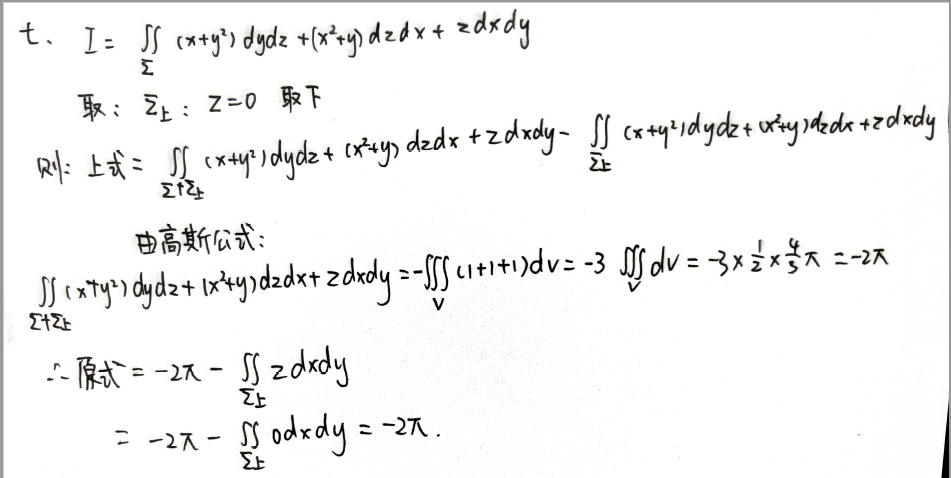 七、I = ∬_Σ (x+y²)dydz+(x²+y)dzdx+zdxdy
取：Σ上：Z=0 取下
则：上式= ∬_{Σ+Σ上} (x+y²)dydz+(x²+y)dzdx+zdxdy- ∬_{Σ上} (x+y²)dydz+(x²+y)dzdx+zdxdy
由高斯公式：
∬_{Σ+Σ上} (x+y²)dydz+(x²+y)dzdx+zdxdy=-∭_V (1+1+1)dv=-3∭_V dv=-3×½×4/3π=-2π
∴原式=-2π-∬_{Σ上} zdxdy
=-2π-∬_{Σ上} 0dxdy=-2π.